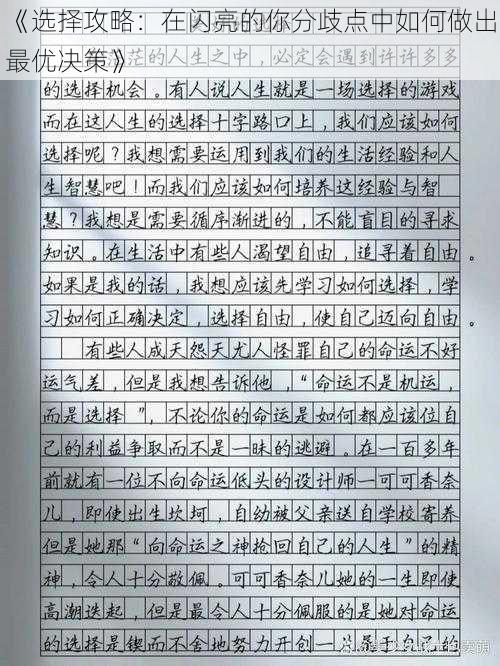 《选择攻略：在闪亮的你分歧点中如何做出
最优决策》
茫的人生之中，必定会遇到许许多多
的选择机会。有人说人生就是一场选择的游戏
而在这人生的选择十字路口上，我们应该如何
选择呢？我想需要运用到我们的生活经验和人
生智慧吧！而我们应该如何培养这经验与智
慧？我想是需要循序渐进的，不能盲目的寻求
知识。在生活中有些人渴望自由，追寻着自由。
如果是我的话，我想应该先学习如何选择，学
习如何正确决定，选择自由，使自己迈向自由。
有些人成天怨天尤人怪罪自己的命运不好
运气差，但是我想告诉他，“命运不是机运，
而是选择”，不论你的命运是如何都应该位自
己的利益争取而不是一昧的逃避。在一百多年
前就有一位不向命运低头的设计师一可可香奈
儿，即使出生坎坷，自幼被父亲送自学校寄养
但是她那“向命运之神抢回自己的人生”的精
神，令人十分敬佩。可可香奈儿她的一生即使
高潮迭起，但是最令人十分佩服的是她对命运
的选择是锲而不舍地努力开创一